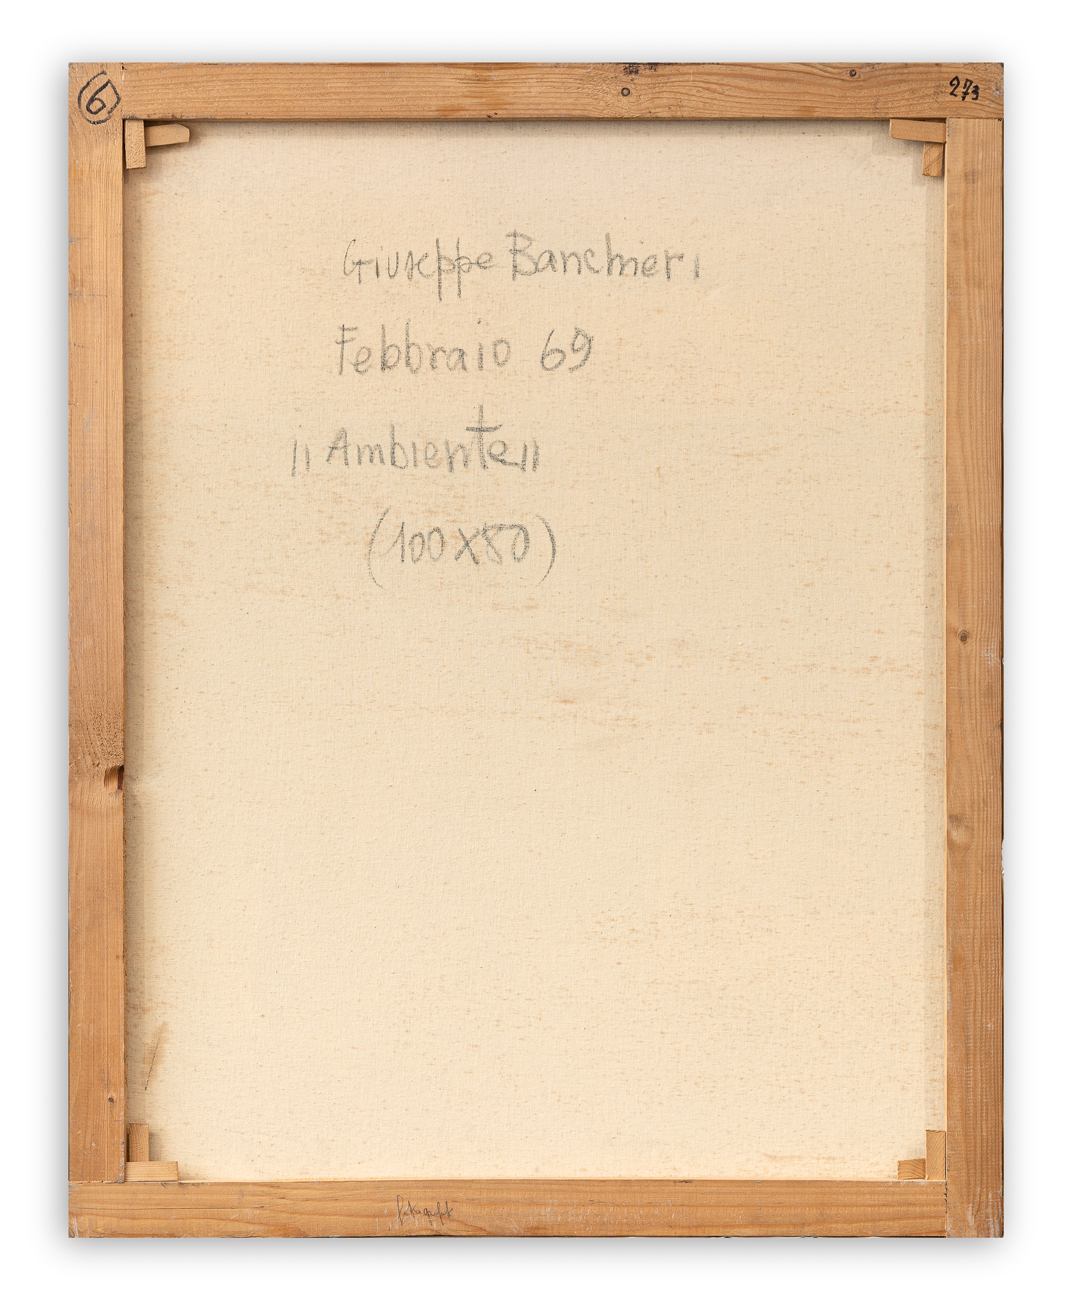 6
273
Giuseppe Banchieri
Febbraio 69
"Ambiente"
(100X80)